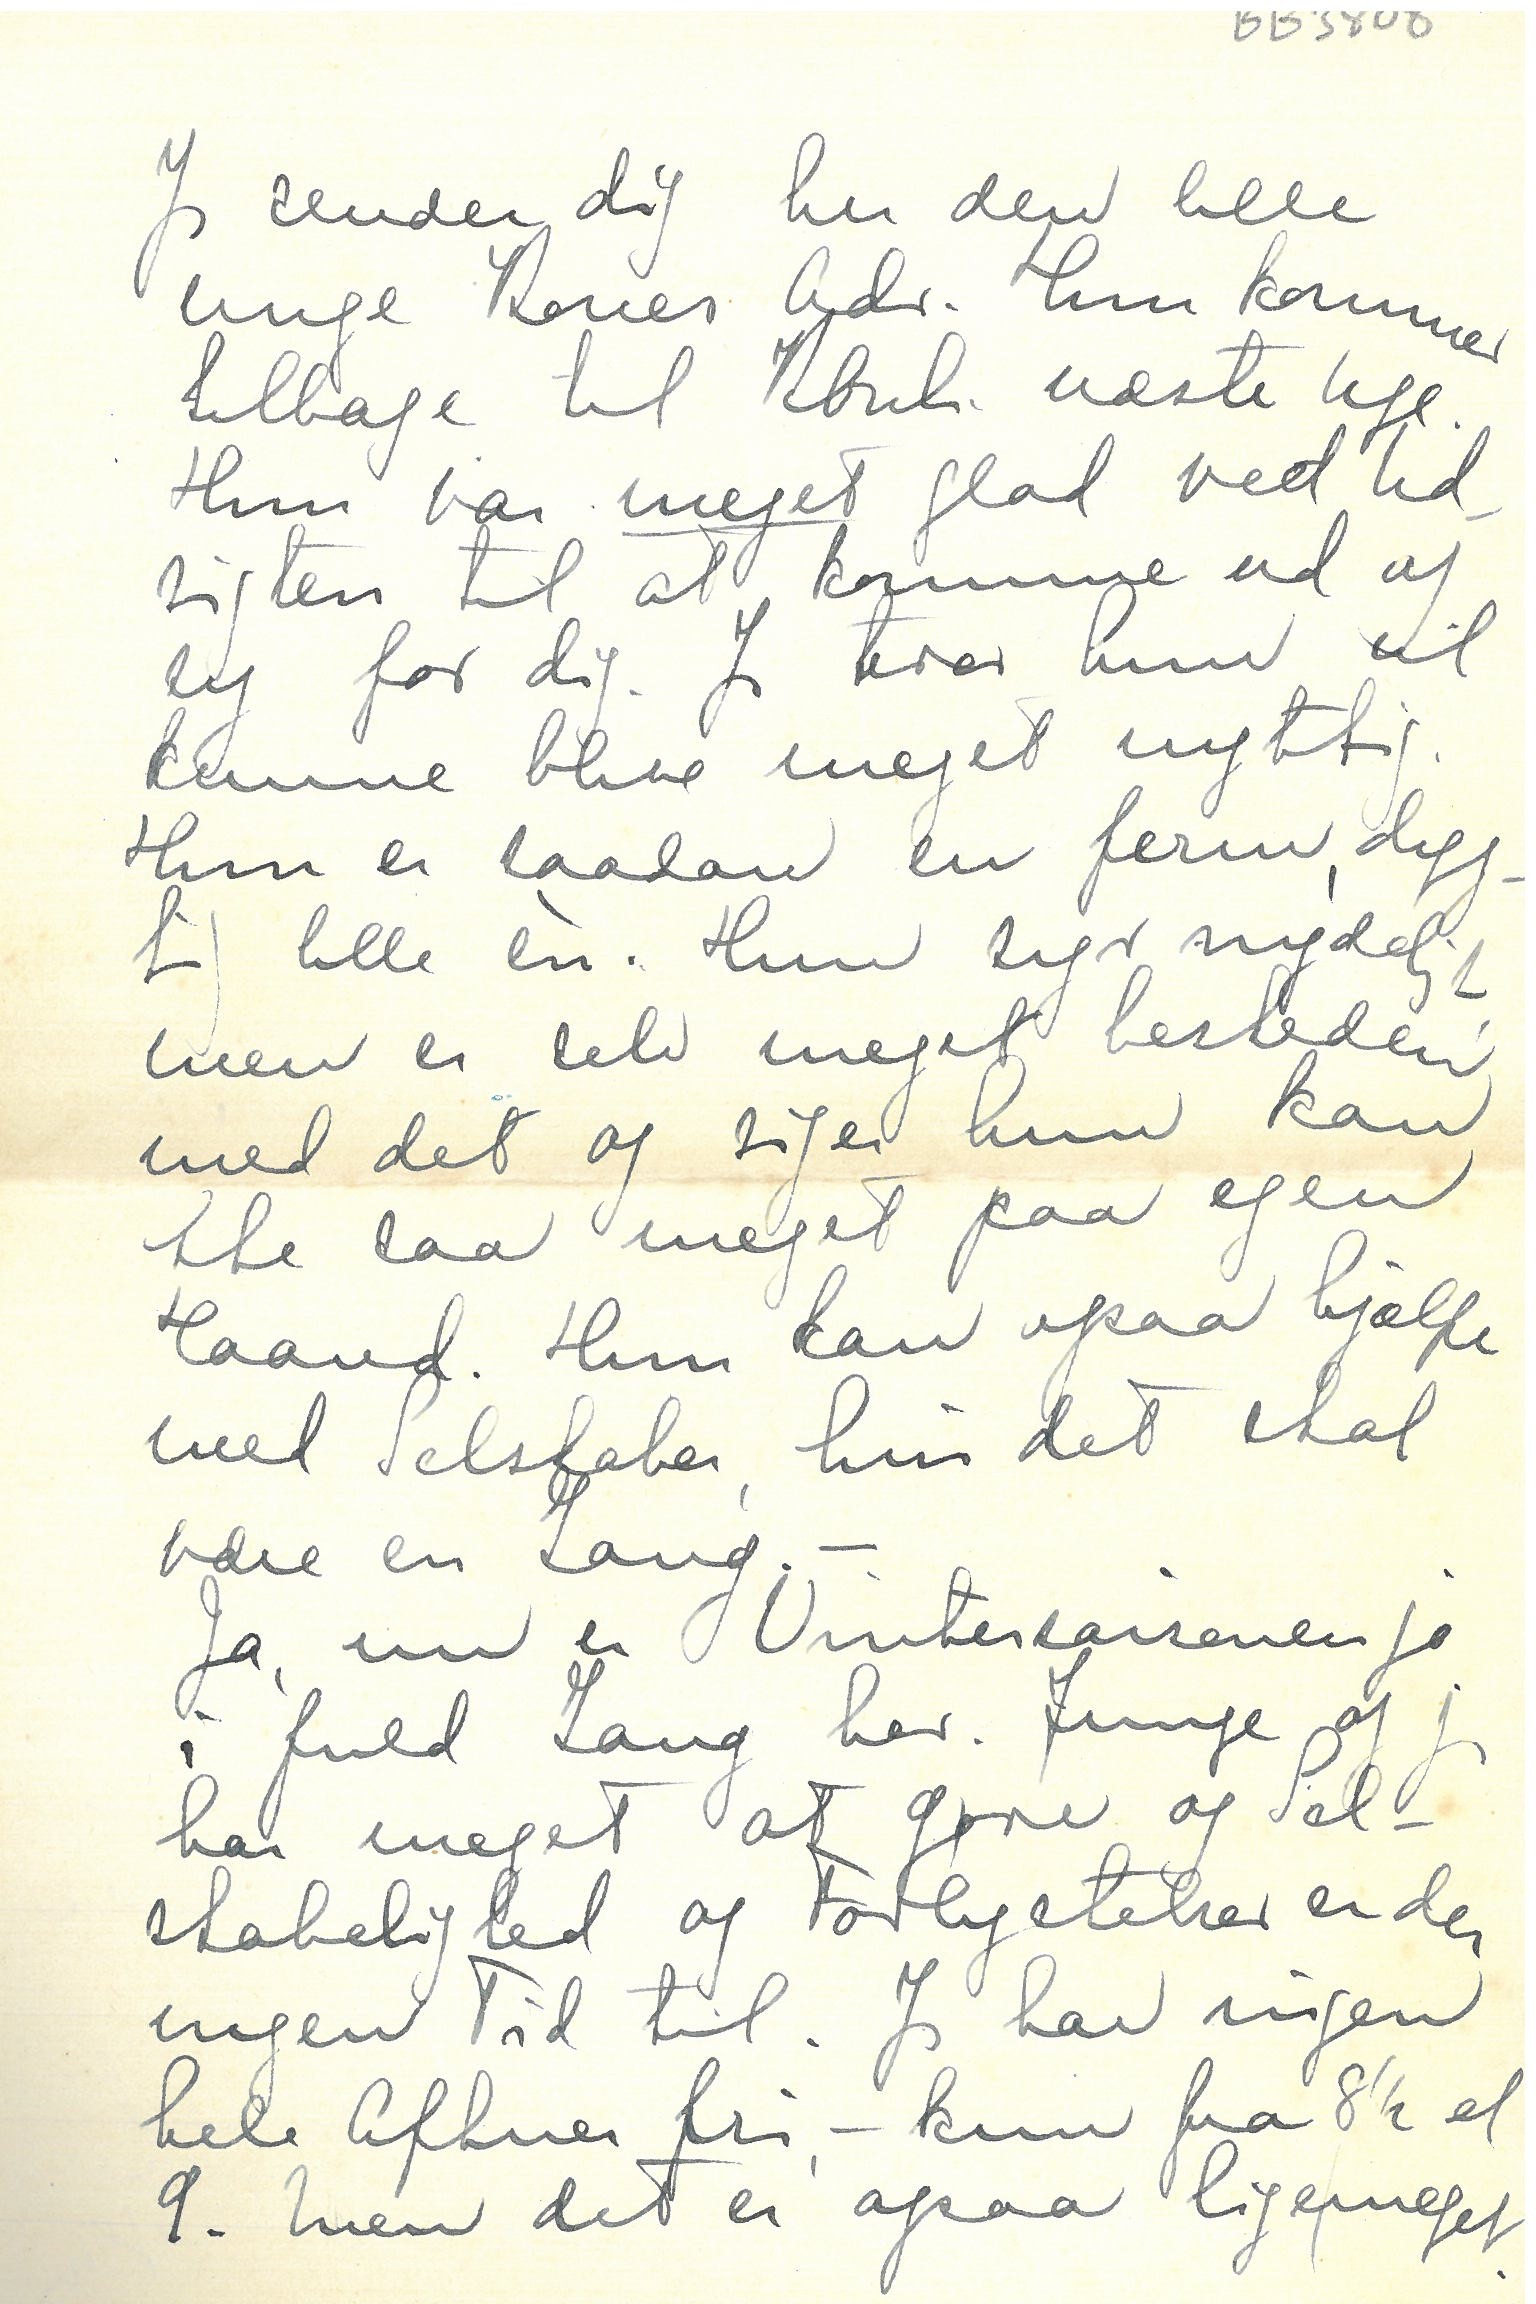 BB3808
Jg sender dig her den lille
unge Kones Adr. Hun kommer
tilbage til Kbnh. næste Uge.
Hun var meget glad ved Ud-
sigten til at komme ud og
sy for dig. Jg tror hun vil
kunne blive meget nyttig.
Hun er saadan en ferm, dyg-
tig lille èn. Hun syr nydeligt
men er selv meget beskeden
med det og siger hun kan
ikke saa meget paa egen
Haand. Hun kan ogsaa hjælpe
med Selskaber, hvis det skal
være en Gang. –
Ja, nu er Vintersaisonen jo
i fuld Gang her. Junge og jg
har meget at gøre og Sel-
skabelighed og Forlystelser er der
ingen Tid til. Jg har ingen
hele Aftner fri, – kun fra 8½ el
9. Men det er ogsaa ligemeget.